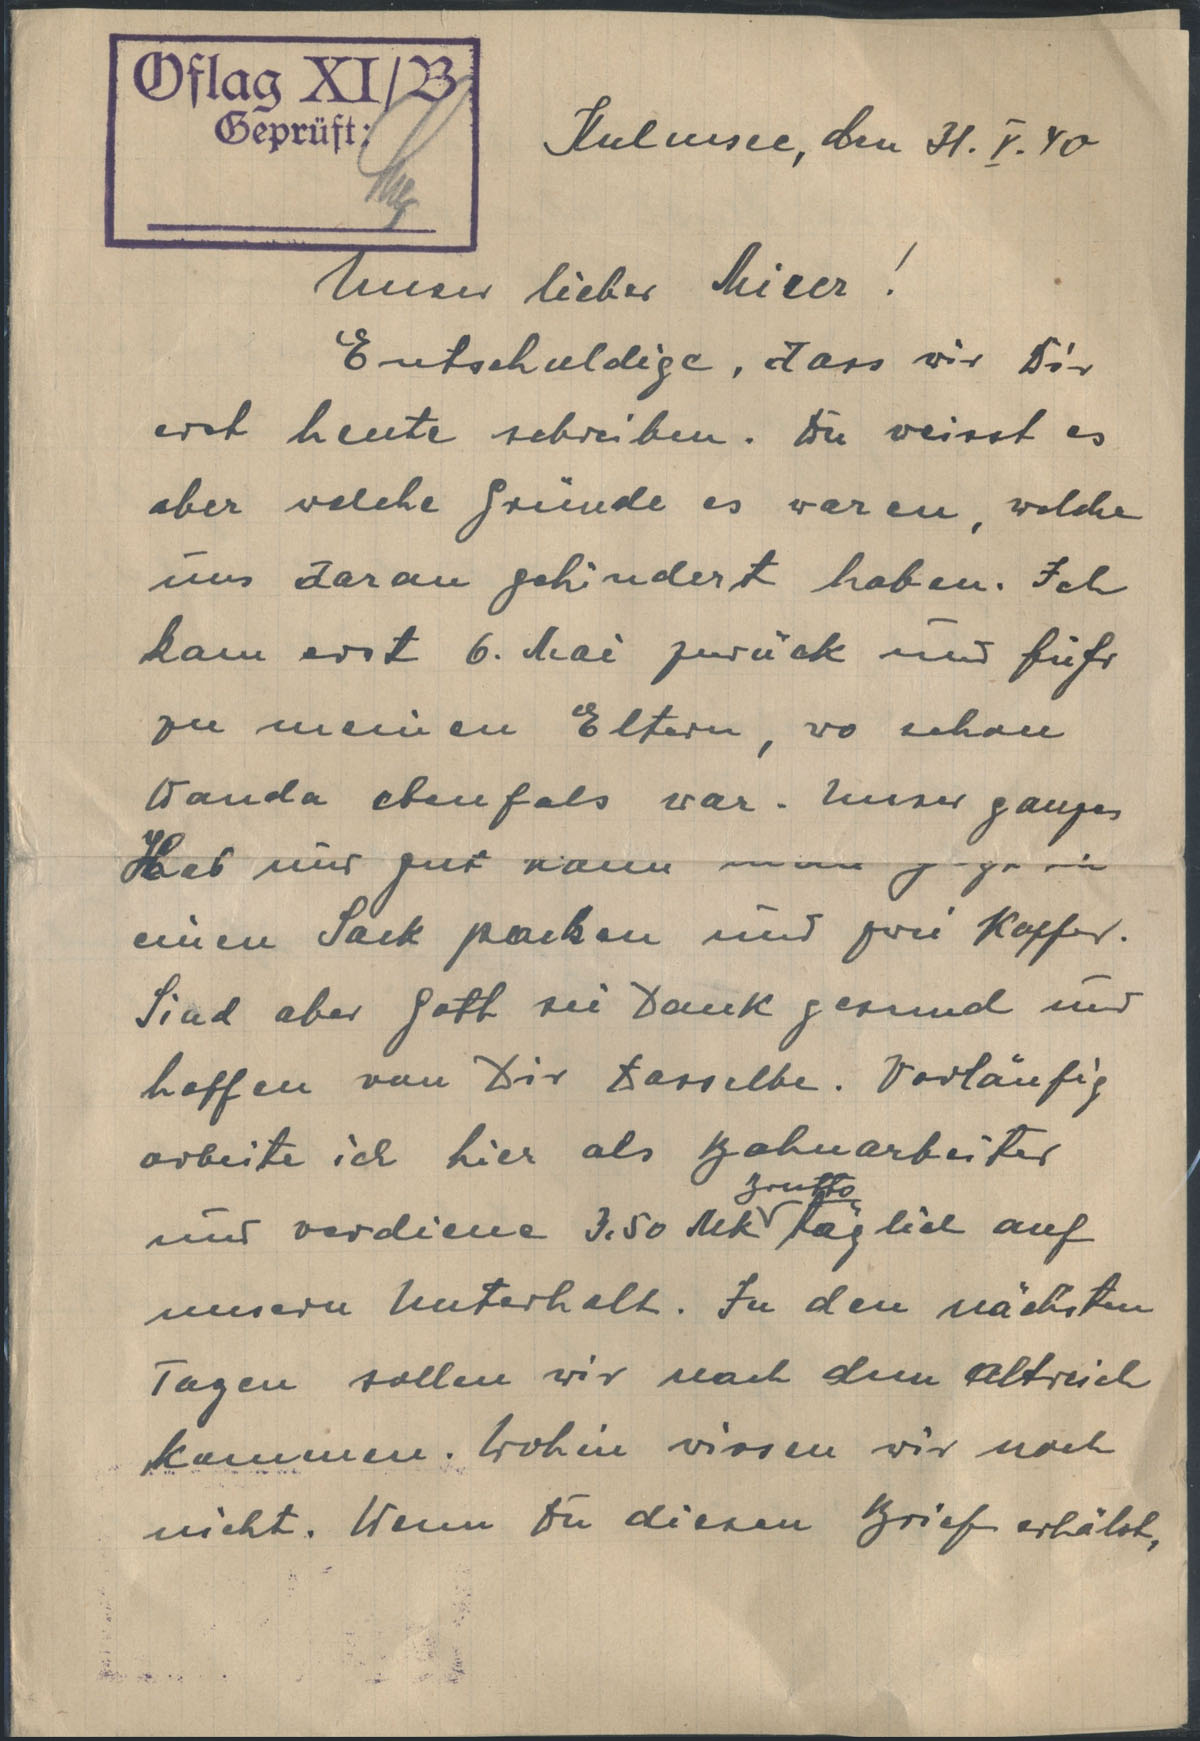 Oflag XI/B
Geprüft:
Kulmsee, den 31. V. 40
Unser lieber !
Entschuldige, dass wir Dir
erst heute schreiben. Du weisst es
aber welche Gründe es waren, welche
uns daran gehindert haben. Ich
kam erst 6. Mai zurück und fuhr
zu meinen Eltern, wo schon
Wanda ebenfals war. Unser ganzes
Hab und Gut kann man in
einen Sack packen und zwei Koffer.
Sind aber Gott sei Dank gesund und
hoffen von Dir dasselbe. Vorläufig
arbeite ich hier als Bahnarbeiter
und verdiene 3.50 Mk brutto täglich auf
unsern Unterhalt. In den nächsten
Tagen sollen wir nach dem Altreich
kommen. Wohin wissen wir noch
nicht. Wenn Du diesen Brief erhälst,